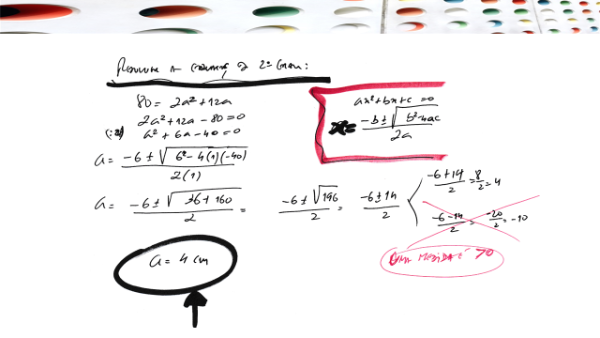 Resolver a equação do 2º Grau:
80 = 2a² + 12a
2a² + 12a - 80 = 0
(:2) a² + 6a - 40 = 0
a = -6 ± √6² - 4(1)(-40) / 2(1)
a = -6 ± √36 + 160 / 2 = -6 ± √196 / 2 = -6 ± 14 / 2
-6 + 14 / 2 = 8 / 2 = 4
-6 - 14 / 2 = -20 / 2 = -10
ax² + bx + c = 0
x = -b ± √b² - 4ac / 2a
a = 4 cm
uma medida é > 0